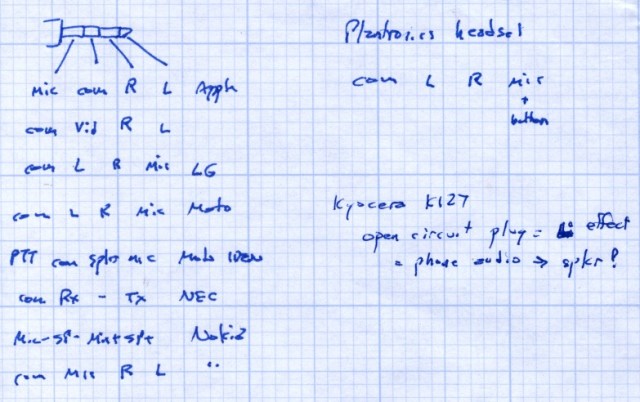 Mic com R L Apple
com Vid R L
com L R Mic LG
com L R Mic Moto
PTT com spkr mic Moto iDEN
com Rx - Tx NEC
Mic- SP- Mic+ SP+ Nokia
com Mic R L "
Plantronics headset
com L R Mic
+
button
Kyocera K127
open circuit plug = effect
= phone audio → spkr?